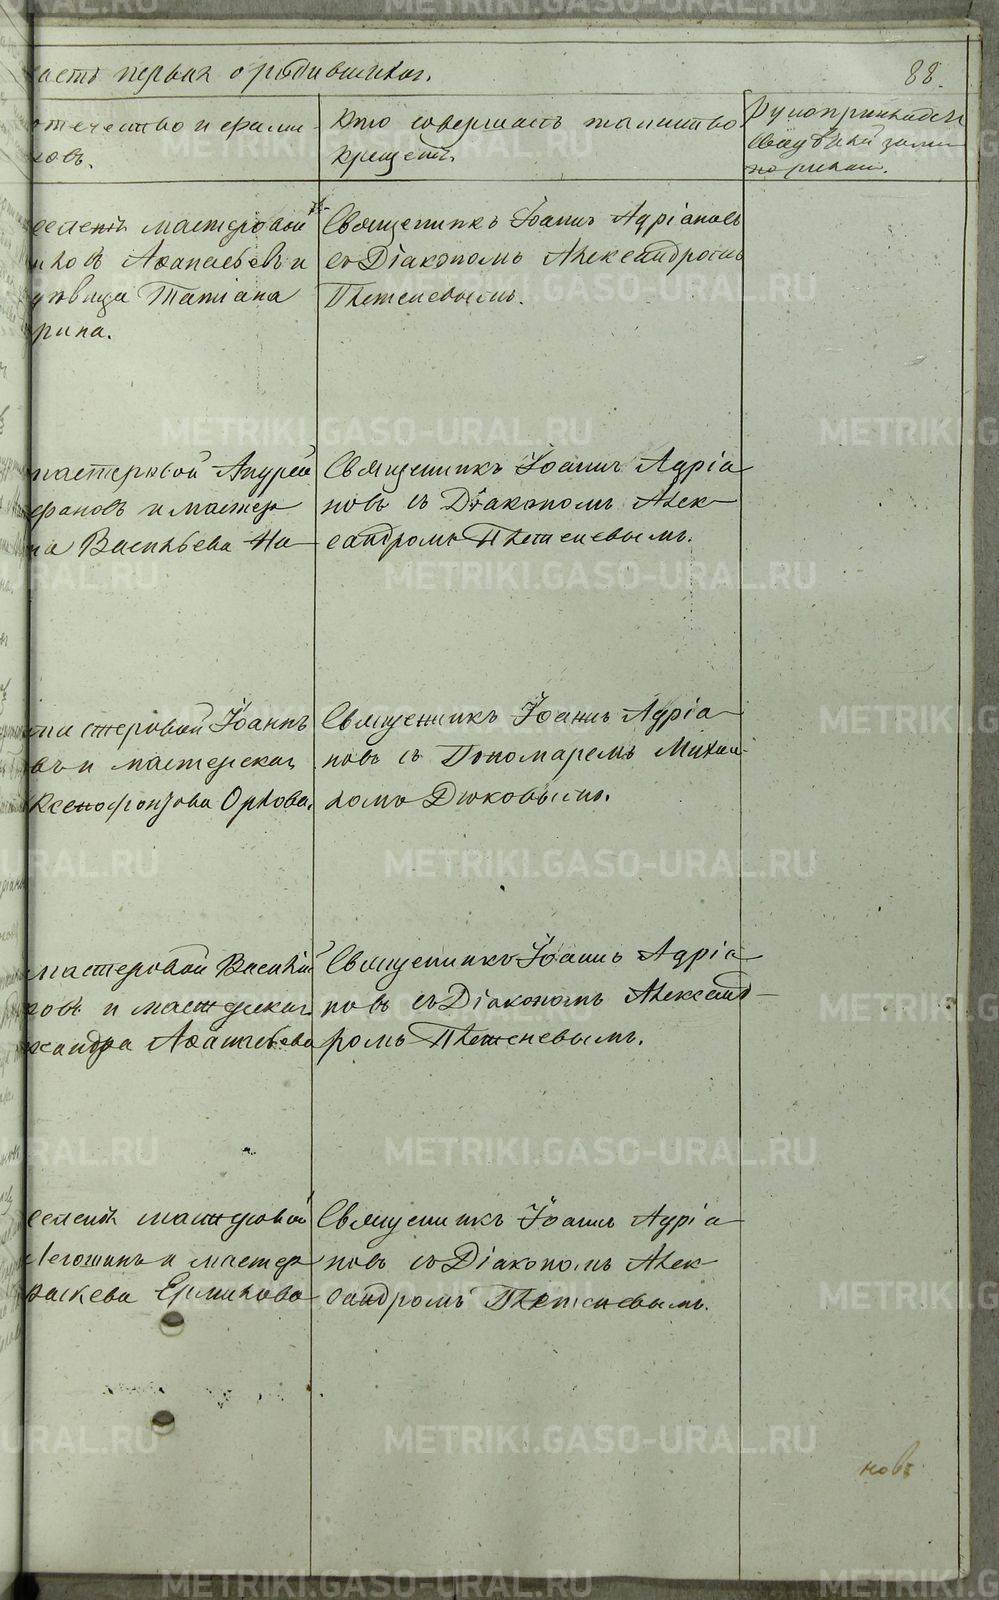 асть первая о родившихся.
88.
отчество и фами-
ковъ.
Кто совершалъ таинство
крещенiя.
Рукоприкладст
свидѣтелей запи
по желан.
мастеровой
Афанасьевъ и
Татiана
рина.
Священникъ Iоаннъ Адрiановъ
съ Дiакономъ Александромъ
Плетеневымъ.
мастеровой Андрей
фановъ и мастер
на Васильева На
Священникъ Iоаннъ Адрiа
новъ съ Дiакономъ Алек-
сандромъ Плетеневымъ.
мастеровой Iоаннъ
въ и мастерская
Ксенофонтова Орлова.
Священникъ Iоаннъ Адрiа
новъ съ Пономаремъ Михаи-
ломъ Дюковымъ.
мастеровой Василiй
ковъ и мастерская
ксандра Афанасьева
Священникъ Iоаннъ Адрiа
новъ съ Дiакономъ Александ-
ромъ Плетеневымъ.
мастеровой
и мастер
Ермакова
Священникъ Iоаннъ Адрiа
новъ съ Дiакономъ Алек
сандромъ Плетеневымъ.
новъ
METRIKI.GASO-URAL.RU